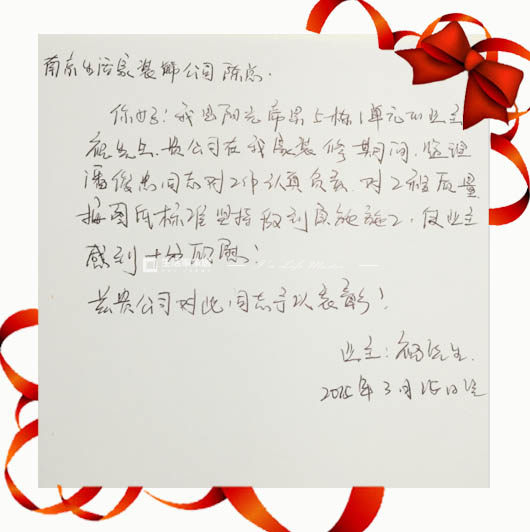 南京生活家装饰公司陈总.
你好：我是阳光帝景5栋1单元的业主
祝先生.贵公司在我家装修期间,监理
潘俊忠同志对工作认真负责.对工程质量
按图纸标准坚持做到实施施工,使业主
感到十分欣慰!
兹贵公司对此同志予以表彰!
业主:祝先生.
3月15日